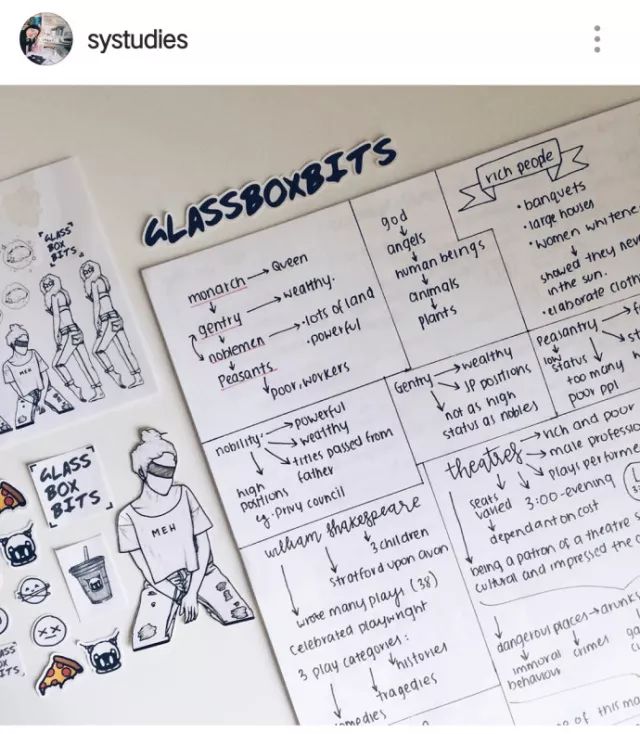 systudies
GLASSBOXBITS
GLASS
BOX
BITS
MEH
GLASS
BOX
BITS
MEH
monarch → Queen
gentry → wealthy.
noblemen → lots of land
• powerful
Peasants
poor, workers
god
angels
human beings
animals
plants
rich people
• banquets
• large houses
• women
showed they
in the sun.
• elaborate
nobility. → powerful
wealthy
titles passed from
father
high
positions
eg. privy council
Gentry → wealthy
JP positions
not as high
status as nobles
Peasantry
low
status
too many
poor ppl
william shakespeare
3 children
stratford upon avon
wrote many plays (38)
celebrated playwright
3 play categories:
histories
tragedies
theatres → rich and poor
male
plays
seats
varied
3:00-evening
dependant on cost
being a patron of a theatre
cultural and impressed the
dangerous places →
immoral
behaviour
crimes
of this